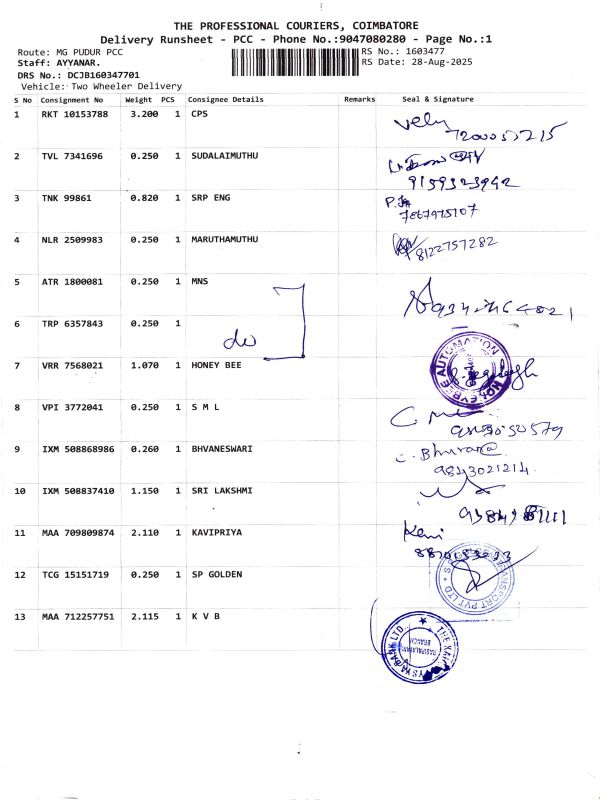 THE PROFESSIONAL COURIERS, COIMBATORE
Delivery Runsheet - PCC - Phone No.:9047080280 - Page No.:1
Route: MG PUDUR PCC
RS No.: 1603477
Staff: AYYANAR.
RS Date: 28-Aug-2025
DRS No.: DCJB160347701
Vehicle: Two Wheeler Delivery
S No Consignment No Weight PCS Consignee Details Remarks Seal & Signature
1 RKT 10153788 3.200 1 CPS
2 TVL 7341696 0.250 1 SUDALAIMUTHU
9159323942
3 TNK 99861 0.820 1 SRP ENG
4 NLR 2509983 0.250 1 MARUTHAMUTHU
8122757282
5 ATR 1800081 0.250 1 MNS
6 TRP 6357843 0.250 1
do
7 VRR 7568021 1.070 1 HONEY BEE
HONEYBEE AUTOMATION
8 VPI 3772041 0.250 1 S M L
9 IXM 508868986 0.260 1 BHVANESWARI
9843021214
10 IXM 508837410 1.150 1 SRI LAKSHMI
11 MAA 709809874 2.110 1 KAVIPRIYA
12 TCG 15151719 0.250 1 SP GOLDEN
TRANSPORT PVT LTD
13 MAA 712257751 2.115 1 K V B
BRANCH